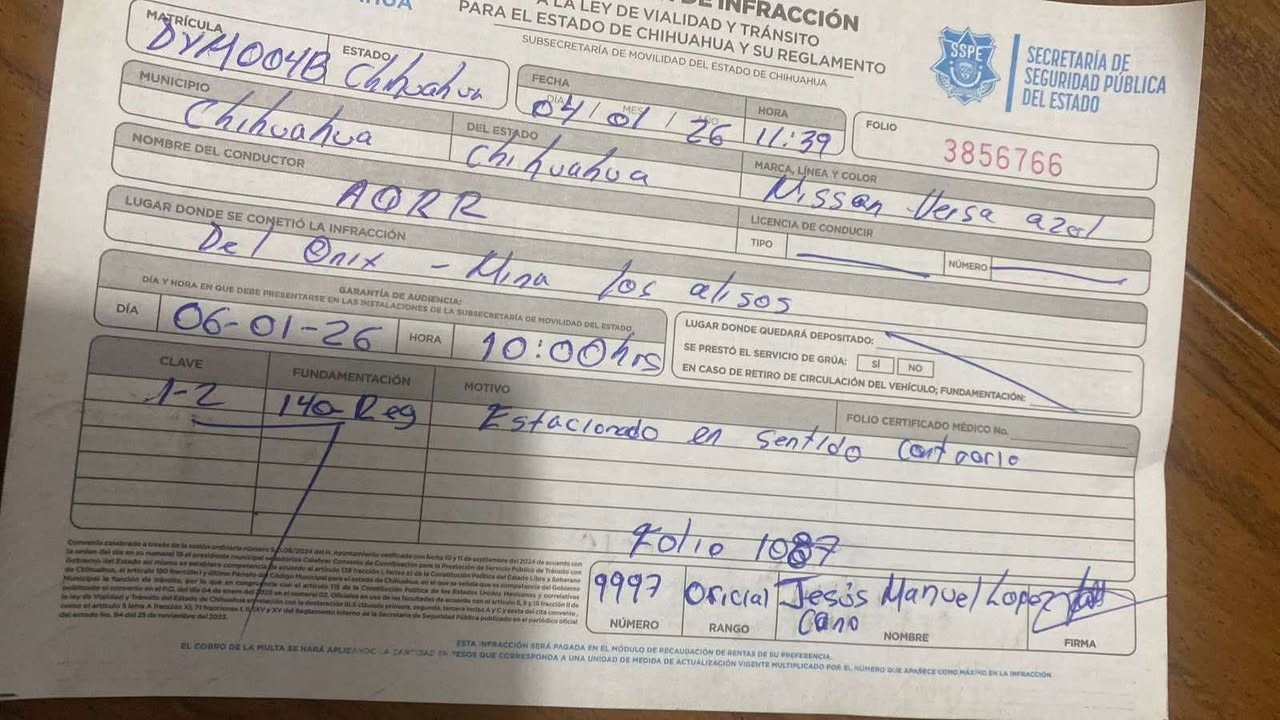 DE INFRACCIÓN
A LA LEY DE VIALIDAD Y TRÁNSITO
PARA EL ESTADO DE CHIHUAHUA Y SU REGLAMENTO
SUBSECRETARÍA DE MOVILIDAD DEL ESTADO DE CHIHUAHUA
SSPE
SECRETARÍA DE
SEGURIDAD PÚBLICA
DEL ESTADO
MATRÍCULA
DYM004B
ESTADO
Chihuahua
FECHA
DÍA MES AÑO
04/01/26
HORA
11:39
FOLIO
3856766
MUNICIPIO
Chihuahua
DEL ESTADO
Chihuahua
MARCA, LÍNEA Y COLOR
Nissan Versa azul
NOMBRE DEL CONDUCTOR
AQRR
LICENCIA DE CONDUCIR
TIPO
NÚMERO
LUGAR DONDE SE COMETIÓ LA INFRACCIÓN
Del Onix - Mina los alisos
GARANTÍA DE AUDIENCIA:
DÍA Y HORA EN QUE DEBE PRESENTARSE EN LAS INSTALACIONES DE LA SUBSECRETARÍA DE MOVILIDAD DEL ESTADO
DÍA 06-01-26 HORA 10:00hrs
LUGAR DONDE QUEDARÁ DEPOSITADO:
SE PRESTÓ EL SERVICIO DE GRÚA: SÍ NO
EN CASO DE RETIRO DE CIRCULACIÓN DEL VEHÍCULO; FUNDAMENTACIÓN:
CLAVE FUNDAMENTACIÓN MOTIVO
FOLIO CERTIFICADO MÉDICO No.
1-2 140 Reg Estacionado en sentido contrario
Folio 1087
9997 Oficial Jesús Manuel Lopez
Cano
NÚMERO RANGO NOMBRE FIRMA
ESTA INFRACCIÓN SERÁ PAGADA EN EL MÓDULO DE RECAUDACIÓN DE RENTAS DE SU PREFERENCIA.
EL COBRO DE LA MULTA SE HARÁ APLICANDO LA CANTIDAD EN PESOS QUE CORRESPONDA A UNA UNIDAD DE MEDIDA DE ACTUALIZACIÓN VIGENTE MULTIPLICADO POR EL NÚMERO QUE APARECE COMO MÁXIMO EN LA INFRACCIÓN.